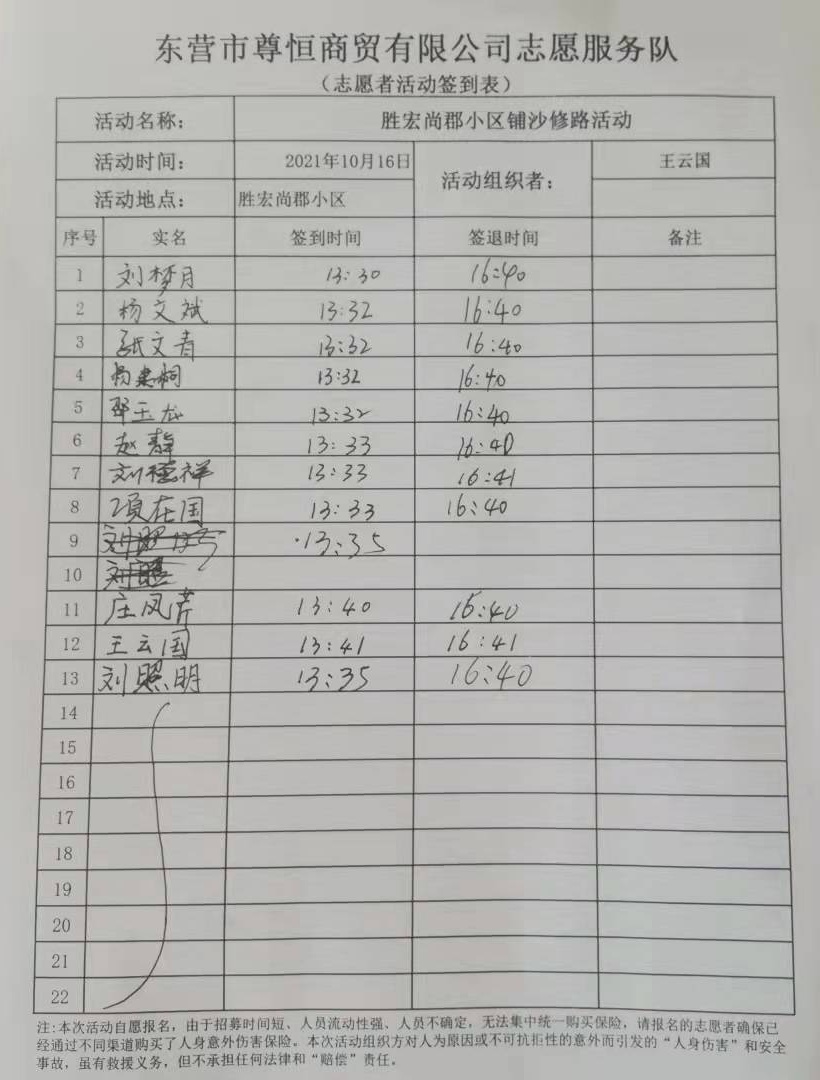 东营市尊恒商贸有限公司志愿服务队
（志愿者活动签到表）
活动名称： 胜宏尚郡小区铺沙修路活动
活动时间： 2021年10月16日 活动组织者： 王云国
活动地点： 胜宏尚郡小区
序号 实名 签到时间 签退时间 备注
1 刘梦月 13:30 16:40
2 杨文斌 13:32 16:40
3 张文青 13:32 16:40
4 13:32 16:40
5 邵玉龙 13:32 16:40
6 赵静 13:33 16:40
7 刘德祥 13:33 16:41
8 项在国 13:33 16:40
9 13:35
10
11 庄凤芹 13:40 16:40
12 王云国 13:41 16:41
13 刘照明 13:35 16:40
14
15
16
17
18
19
20
21
22
注:本次活动自愿报名，由于招募时间短、人员流动性强、人员不确定，无法集中统一购买保险，请报名的志愿者确保已
经通过不同渠道购买了人身意外伤害保险。本次活动组织方对人为原因或不可抗拒性的意外而引发的“人身伤害”和安全
事故，虽有救援义务，但不承担任何法律和“赔偿”责任。